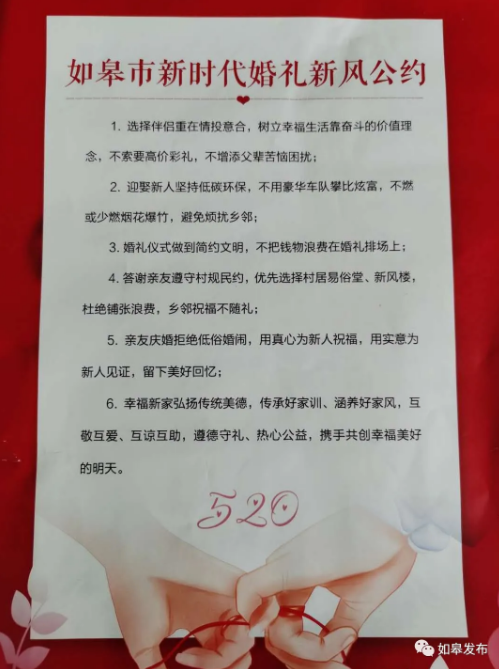 如皋市新时代婚礼新风公约
1. 选择伴侣重在情投意合，树立幸福生活靠奋斗的价值理
念，不索要高价彩礼，不增添父辈苦恼困扰；
2. 迎娶新人坚持低碳环保，不用豪华车队攀比炫富，不燃
或少燃烟花爆竹，避免烦扰乡邻；
3. 婚礼仪式做到简约文明，不把钱物浪费在婚礼排场上；
4. 答谢亲友遵守村规民约，优先选择村居易俗堂、新风楼，
杜绝铺张浪费，乡邻祝福不随礼；
5. 亲友庆婚拒绝低俗婚闹，用真心为新人祝福，用实意为
新人见证，留下美好回忆；
6. 幸福新家弘扬传统美德，传承好家训、涵养好家风，互
敬互爱、互谅互助，遵德守礼、热心公益，携手共创幸福美好
的明天。
520
如皋发布